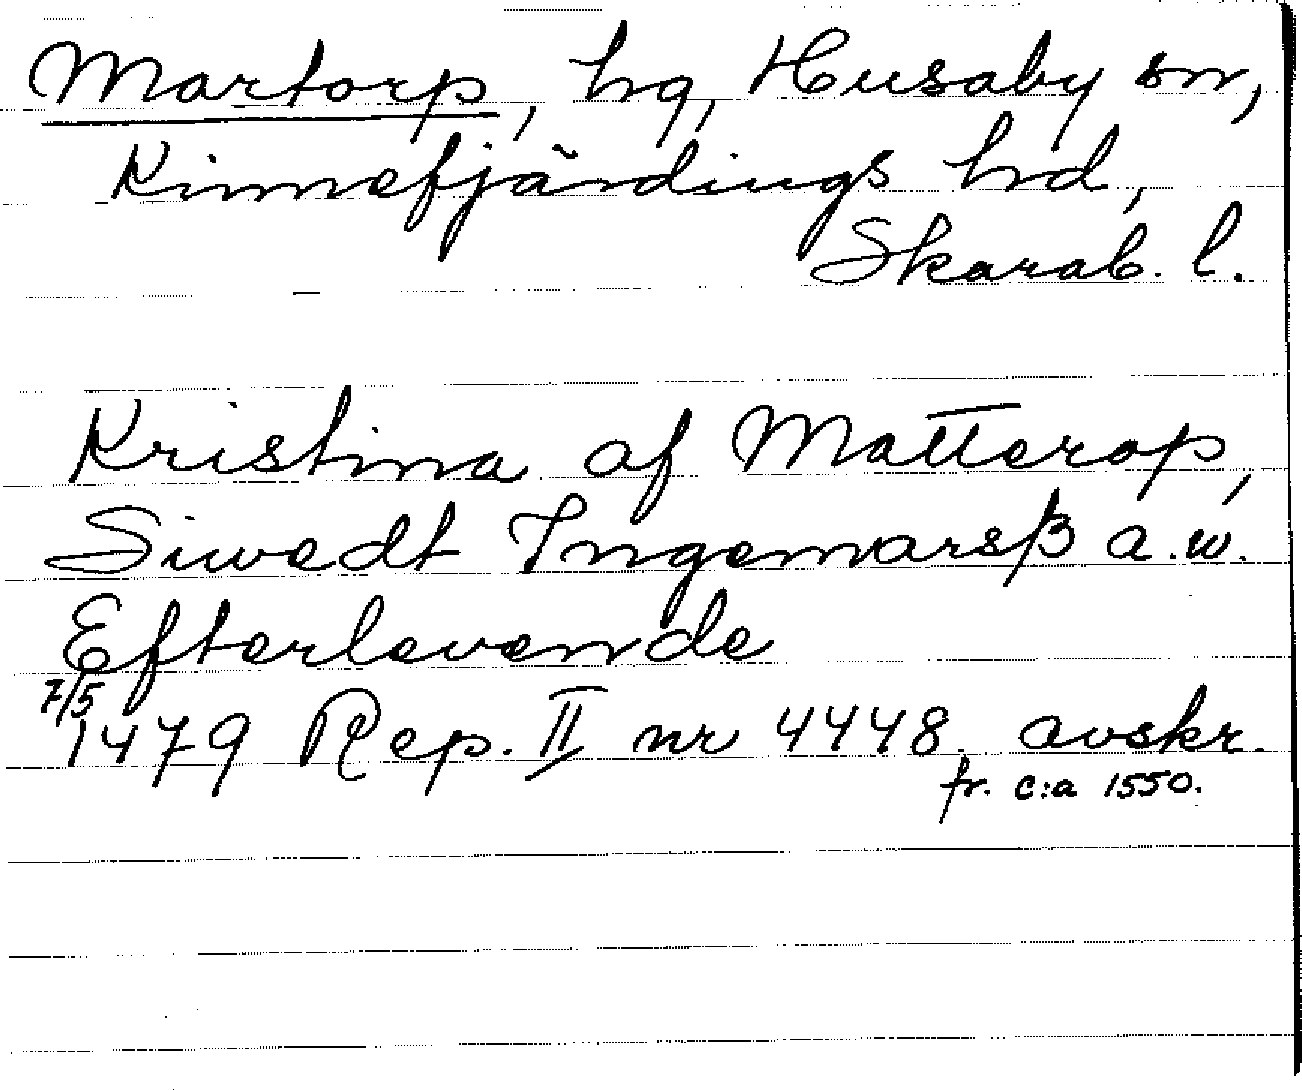 Martorp, hg, Husaby sn,
Kinnefjärdings hrd,
Skarab. l.
Kristina af Matterop,
Siwedt Ingemarsß a.w.
Efterlevende
7/5
1479 Rep. II nr 4448. avskr.
fr. c:a 1550.